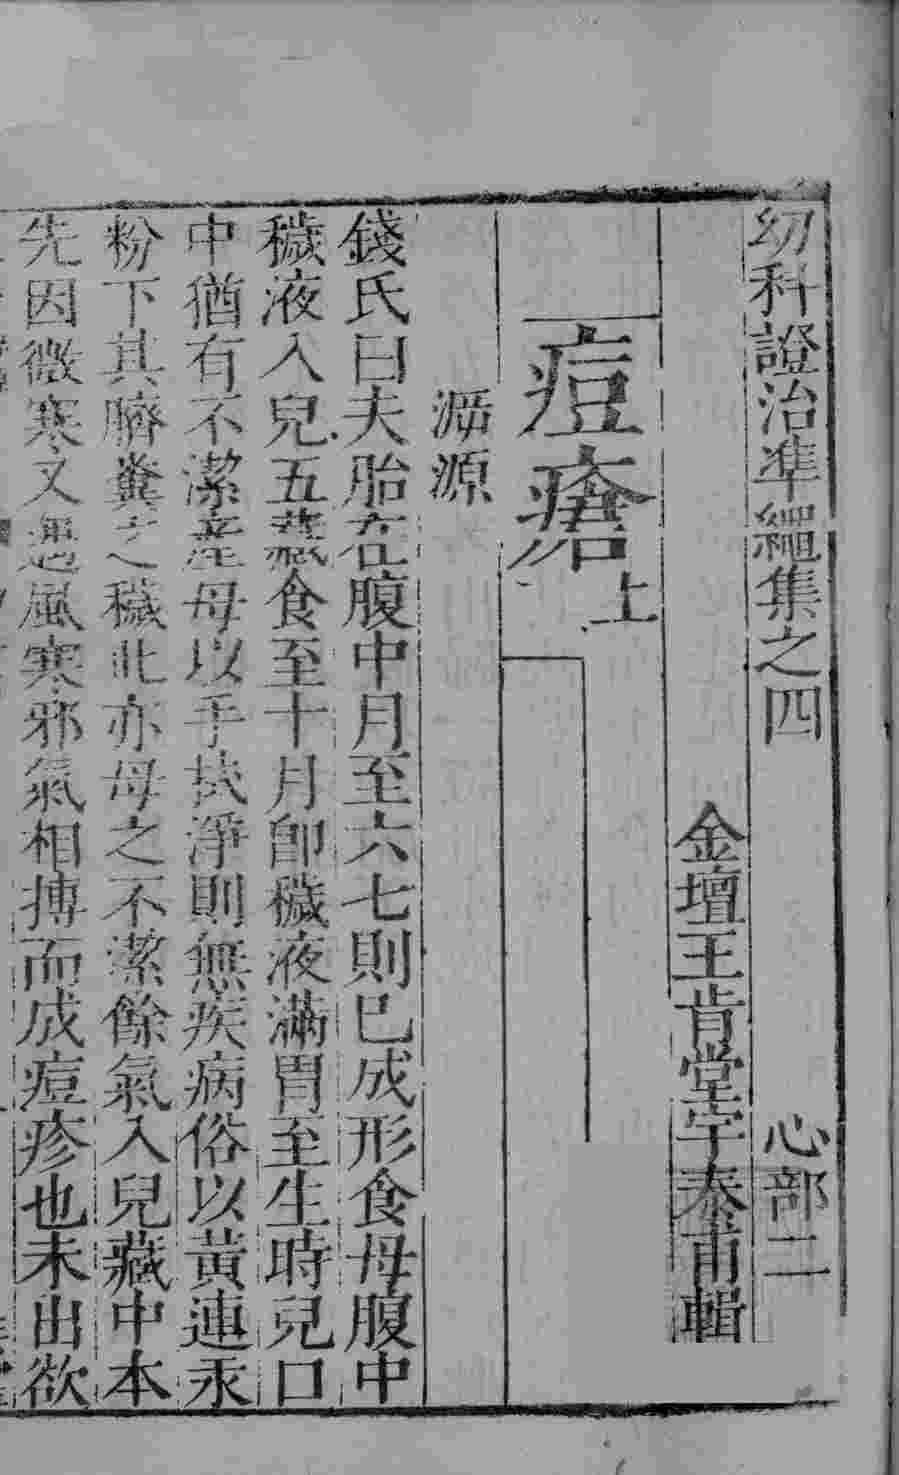 幼科證治準繩集之四　心部二
金壇王肯堂宇泰甫輯
痘瘡上
源
錢氏曰夫胎在腹中月至六七則已成形食母腹中
穢液入兒五藏食至十月即穢液滿胃至生時兒口
中猶有不潔產母以手拭淨則無疾病俗以黃連汞
粉下其臍糞之穢此亦母之不潔餘氣入兒藏中本
先因微寒又遇風寒邪氣相搏而成痘疹也未出欲